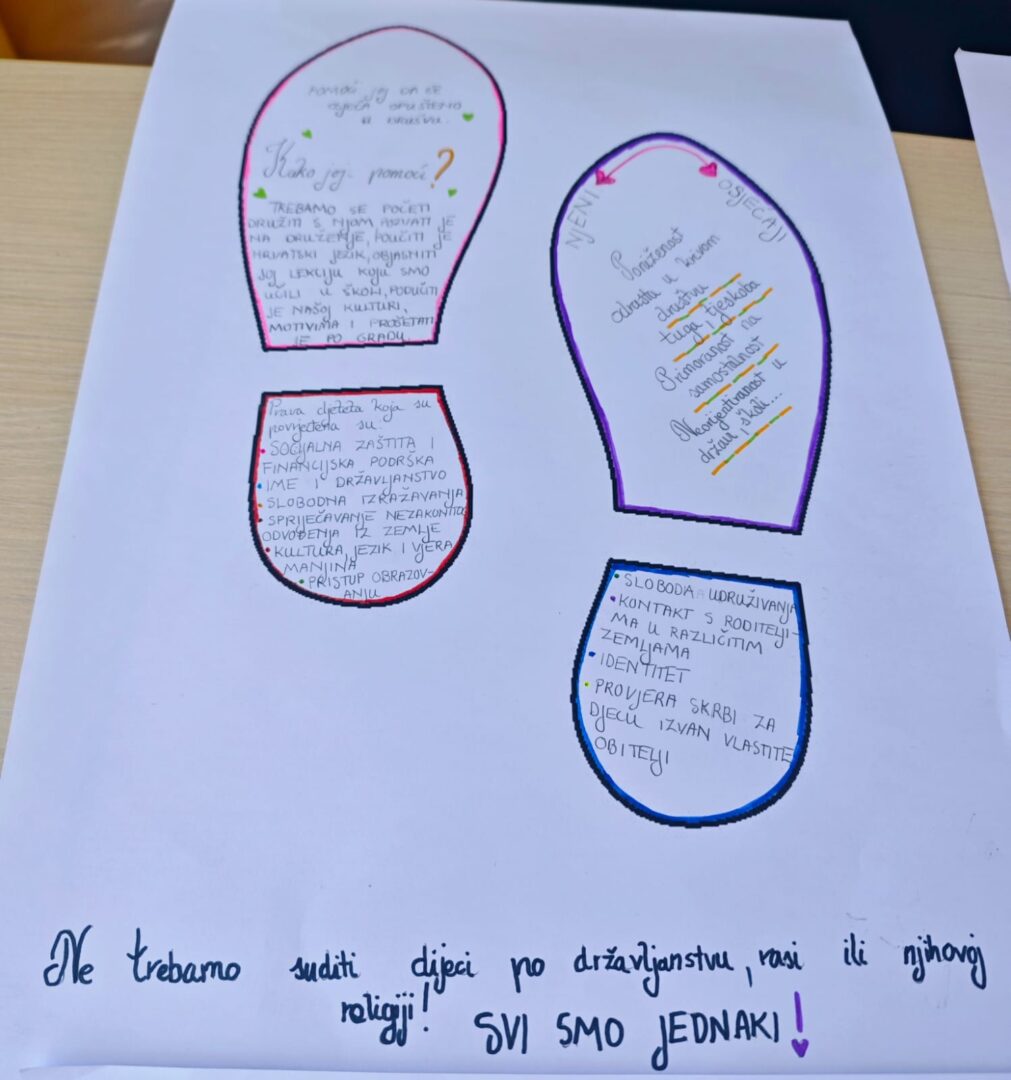 POMOĆI JOJ DA SE
OSJEĆA OPUŠTENO
U DRUŠTVU.
Kako joj pomoći?
TREBAMO SE POČETI
DRUŽITI S NJOM, POZVATI JE
NA DRUŽENJE, POUČITI JE
HRVATSKI JEZIK, OBJASNITI
JOJ LEKCIJU KOJU SMO
UČILI U ŠKOLI, PODUČITI
JE NAŠOJ KULTURI,
MOTIVIMA I PROŠETATI
JE PO GRADU.
Prava djeteta koja su
povrijeđena su:
• SOCIJALNA ZAŠTITA I
FINANCIJSKA PODRŠKA
• IME I DRŽAVLJANSTVO
• SLOBODNA IZRAŽAVANJA
• SPRIJEČAVANJE NEZAKONITOG
ODVOĐENJA IZ ZEMLJE
• KULTURA, JEZIK I VJERA
MANJINA
• PRISTUP OBRAZOV-
ANJU
NJENI OSJEĆAJI
Poniženost
odrasta u krivom
društvu
tuga i tjeskoba
Primoranost na
samostalnost
Neorijentiranost u
državi i školi...
• SLOBODA UDRUŽIVANJA
• KONTAKT S RODITELJI-
MA U RAZLIČITIM
ZEMLJAMA
• IDENTITET
• PROVJERA SKRBI ZA
DJECU IZVAN VLASTITE
OBITELJI
Ne trebamo suditi dijeci po državljanstvu, rasi ili njihovoj
religiji! SVI SMO JEDNAKI!